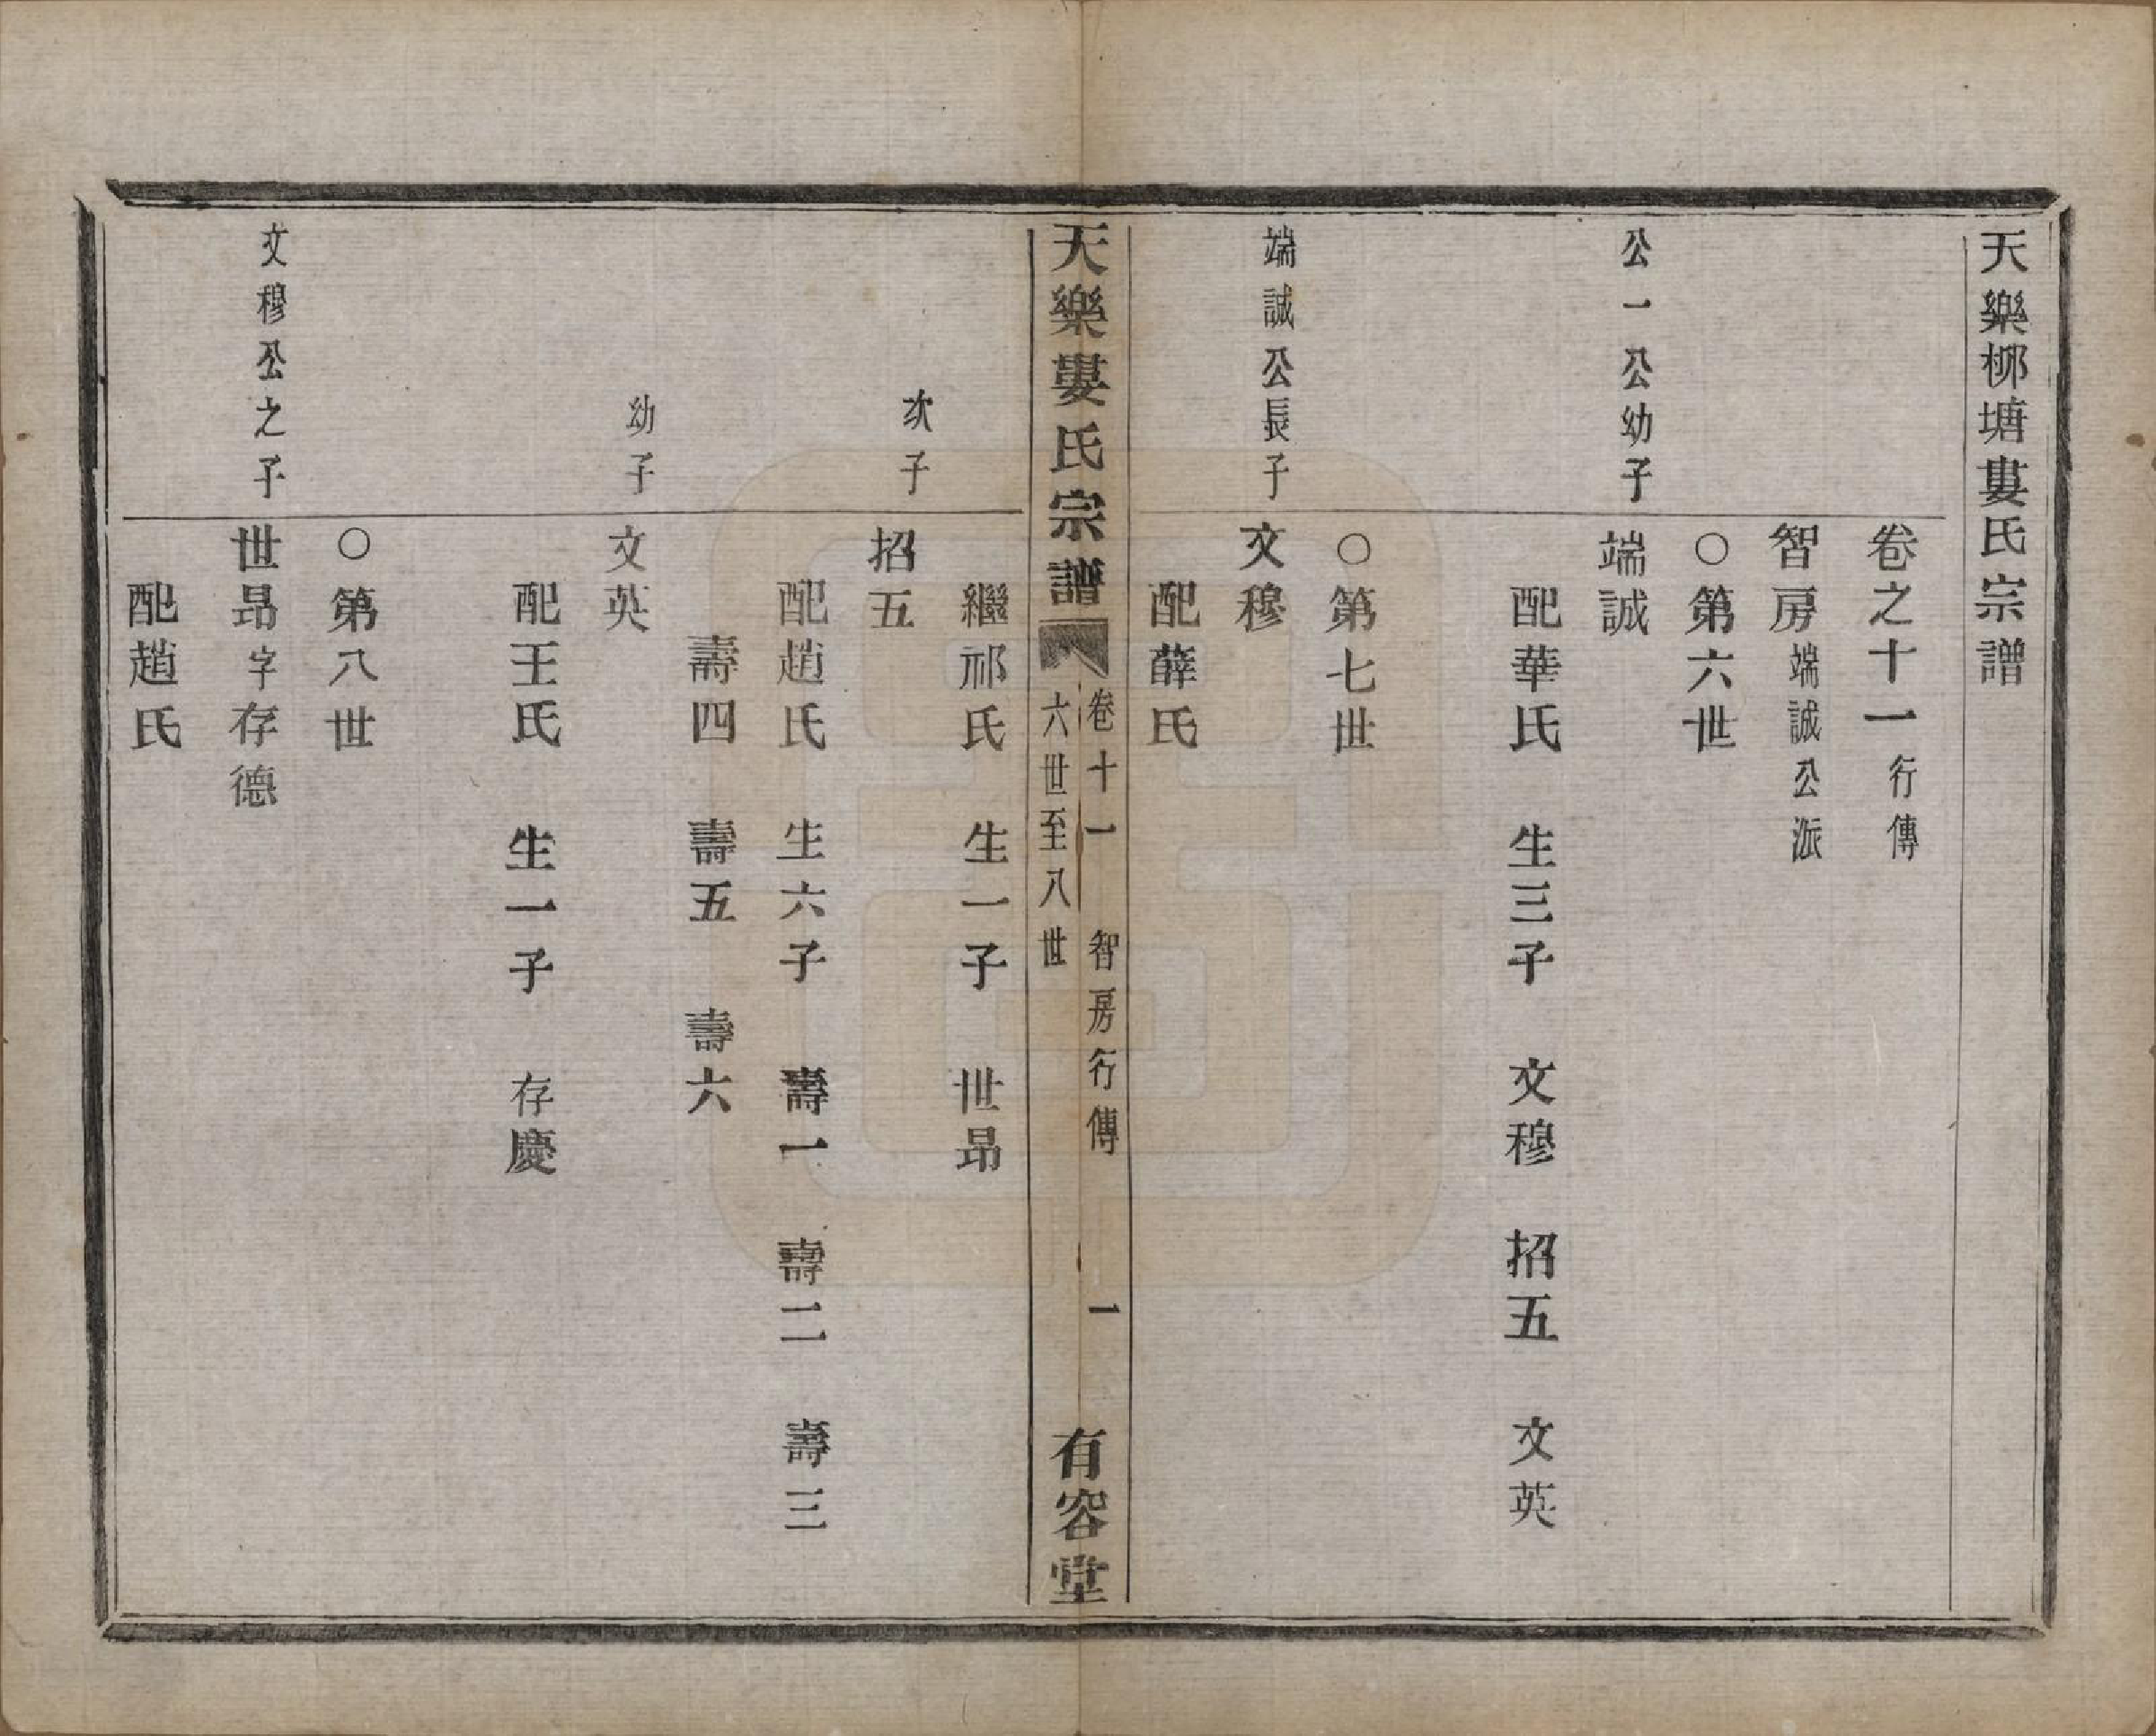 天樂桞塘婁氏宗譜
卷之十一行傳
智房端誠公派
○第六世
公一公幼子
端誠
配華氏　生三子　文穆　招五　文英
○第七世
端誠公長子
文穆
配薛氏
天樂婁氏宗譜
卷十一　智房行傳　一
六世至八世
有容堂
繼邧氏　生一子　世昂
次子
招五
配趙氏　生六子　壽一　壽二　壽三
壽四　壽五　壽六
幼子
文英
配王氏　生一子　存慶
○第八世
文穆公之子
世昂字存德
配趙氏